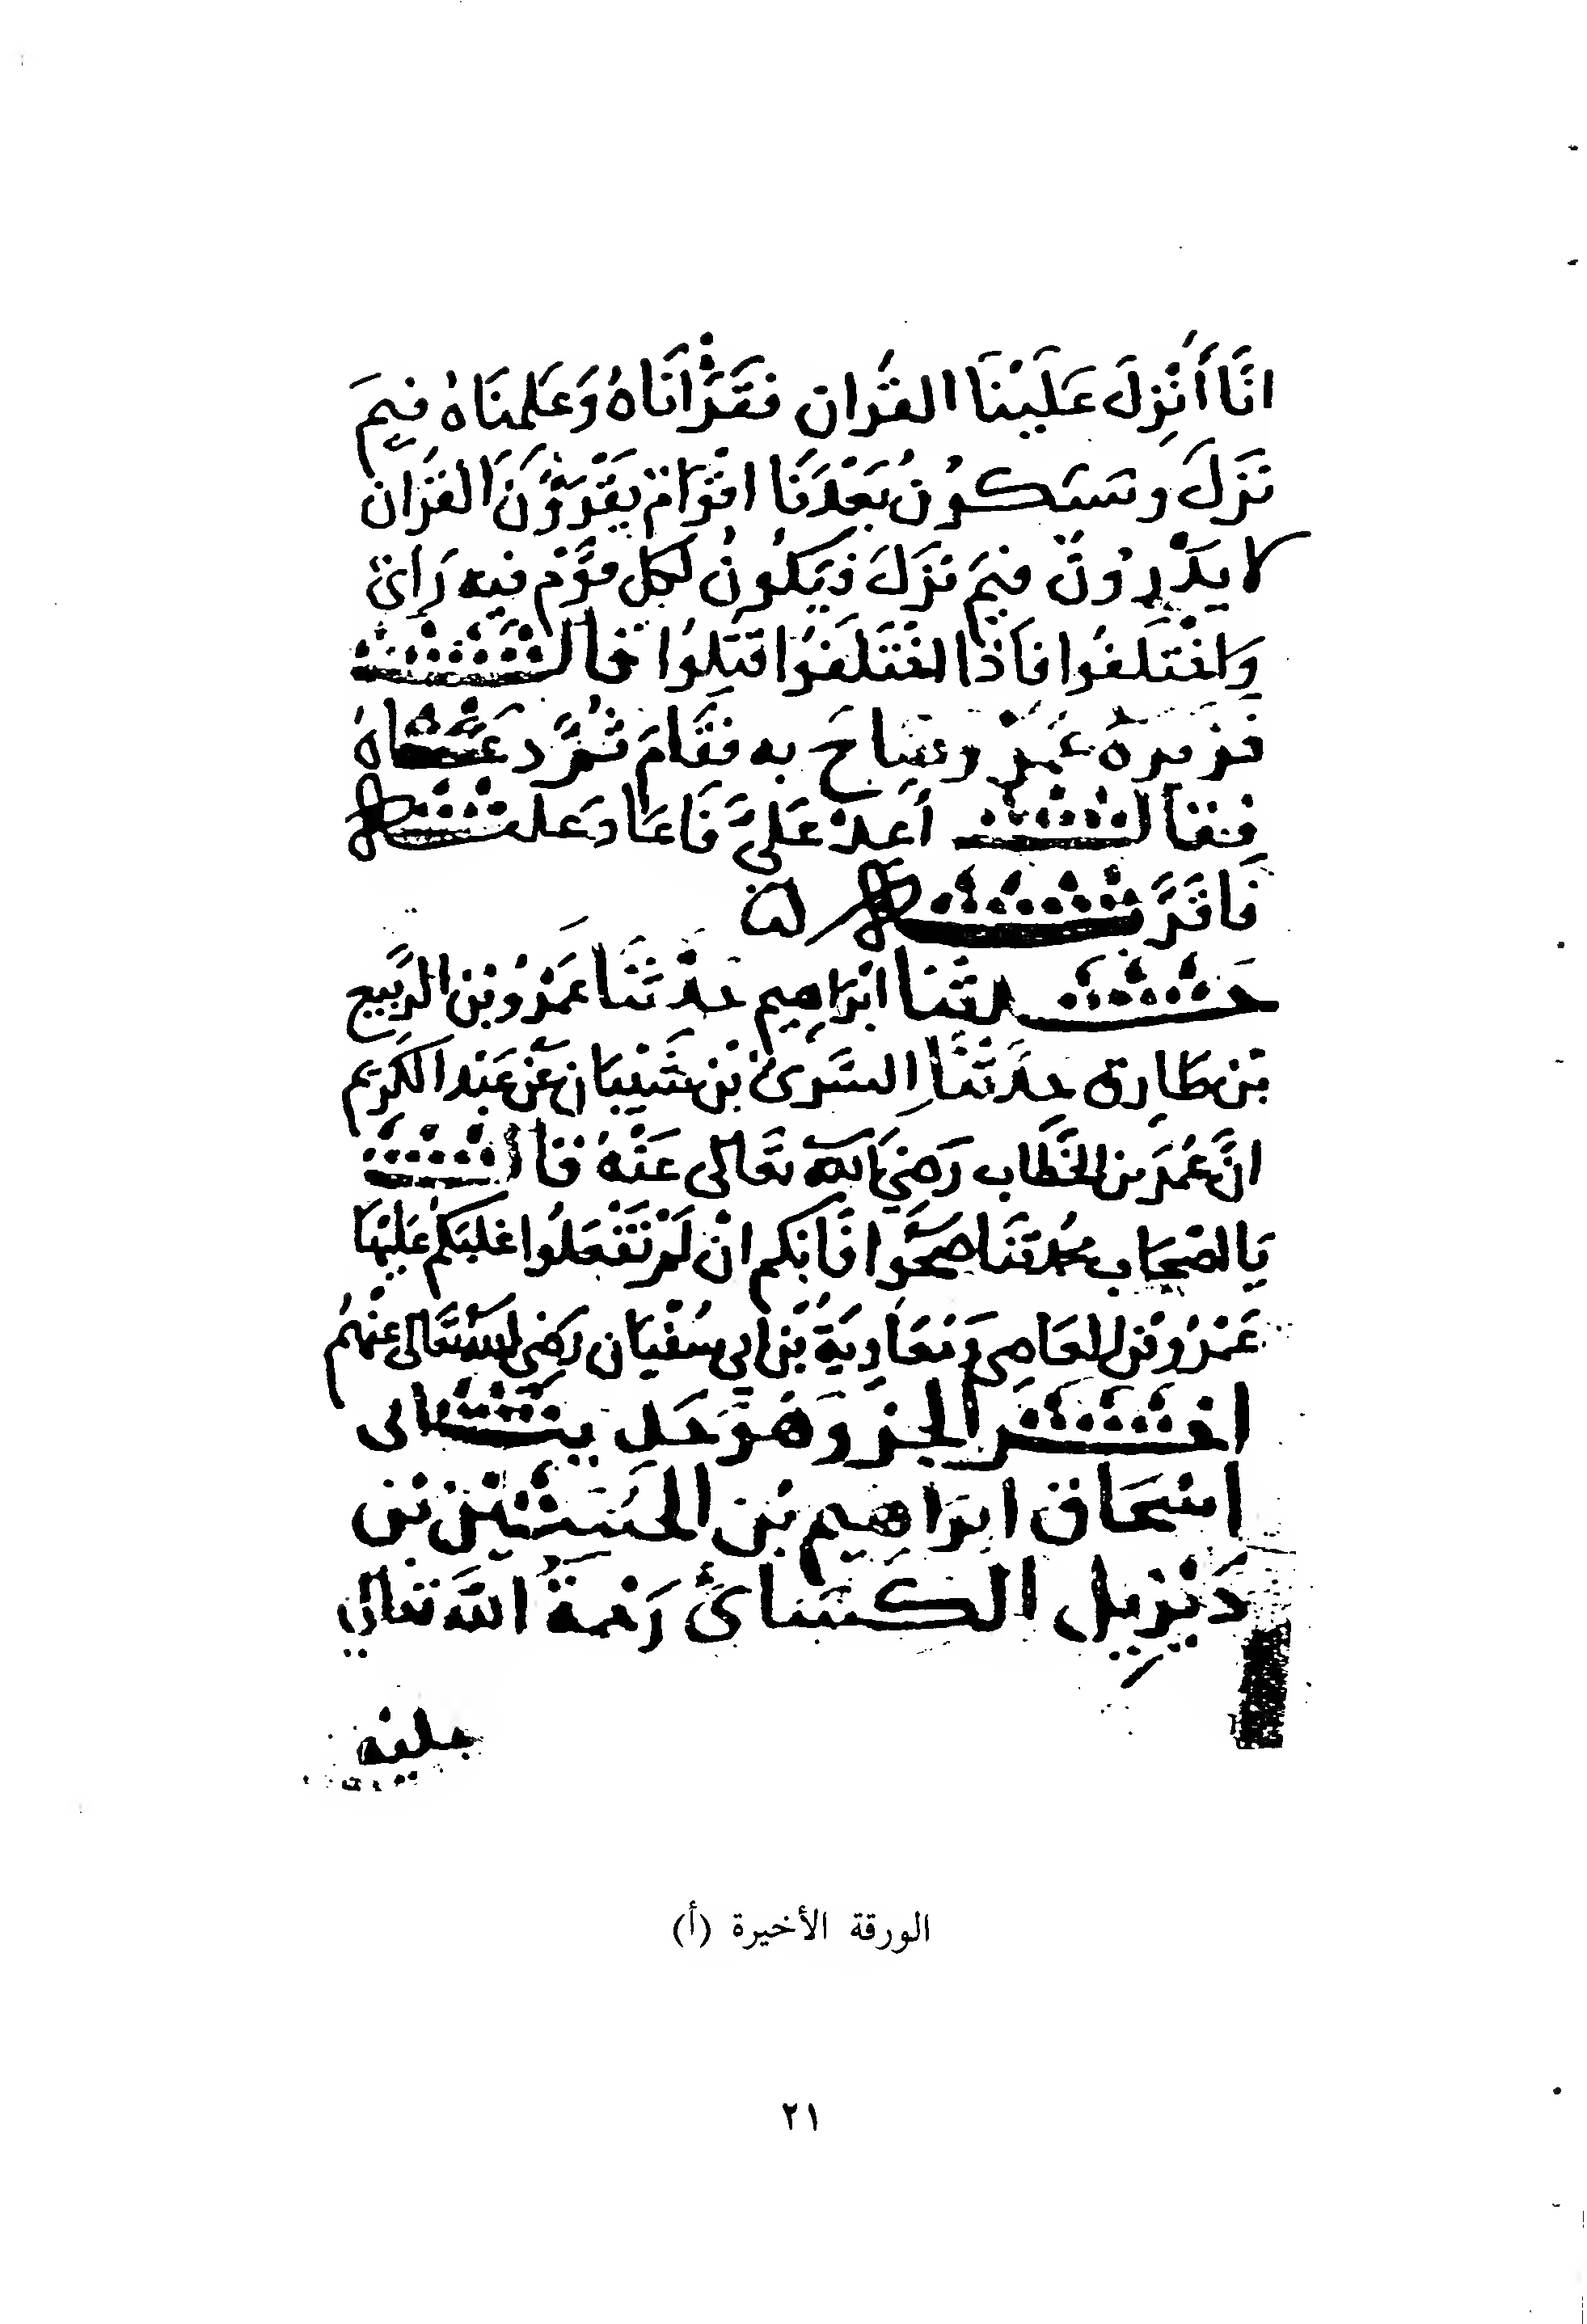 انَّا أُنْزِلَ عَلَيْنَا القُرَان فَقَرَأنَاهُ وَعَلمنَاهُ فيِمَ
نَزَلَ وسَتَكُونُ بَعْدَنَا اقْوَامٌ يَقْرَؤُنَ القُرَان
لا يَدْرِوُنَ فيمَ نَزَلَ فَيَكُونُ لكِلِ قَوْم فيِه رَاىٌ
وَاخْتَلَفُوا فَاذَا اخْتَلَفُوا قتَلِوُا قال
فَزَبَرهُ عُمَرُ وصَاحَ به فَقَامَ ثُمَّ دَعَاهُ
فقال أَعِدْ عَليَّ فَاعَادَ عليه
فَاقَرَّ به
حَدثنا ابْرَاهِيم حَدثَنَا عَمْرُو بْن الرَّبيع
بْن طَارِق حَدثَنَا السَّرِىُّ بْن شَيْبَان عَنْ عَبْد الكَريِم
انَّ عُمَرَ بن الخَطَّاب رَضِيَ الله تعَالى عَنْهُ قال
يَا اصْحَاب مُحمد تَنَاصَحُوا فَانكم انْ لَمْ تَفْعَلُوا غَلَبَكُم عَليْهَا
عَمْرُو بْن العَاصِى وَمُعَاوِيَةُ بْن ابي سُفْيَان رَضِي الله تعَالى عَنْهُم
اخر الجزَ وَهُوَ حَدِيث ابى
اسْحَاق ابرَاهِيم بْن الحُسَيْن بْن
دَيْزِيِل الكسَائىَّ رَحْمَةُ اللَّه تعَالى
عليْه
الورقة الأخيرة (أ)
٢١